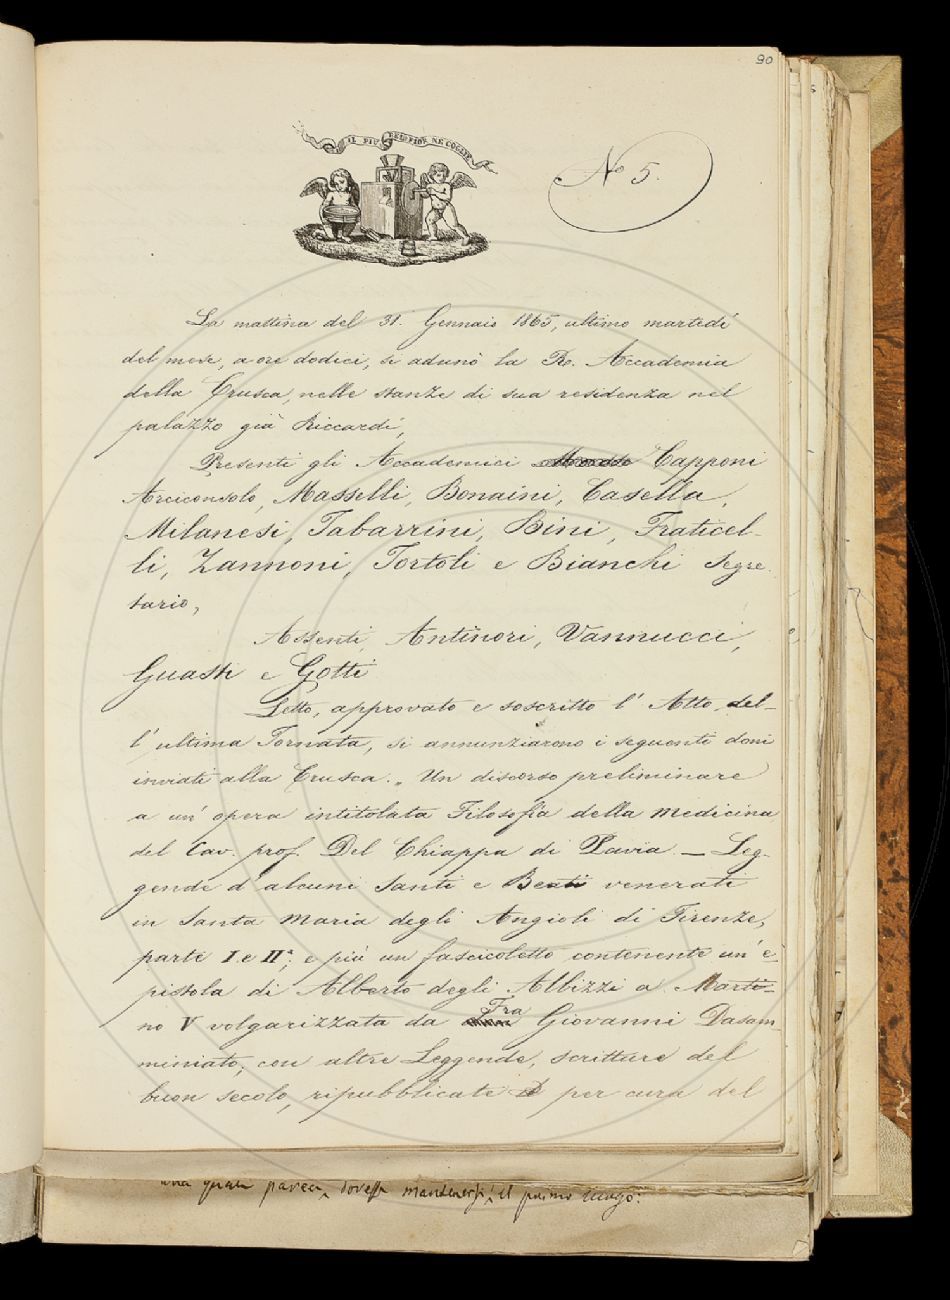 90
IL PIÙ BEL FIOR NE COGLIE
N.o 5.
La mattina del 31. Gennaio 1865, ultimo martedí
del mese, a ore dodici, si adunò la R. Accademia
della Crusca, nelle stanze di sua residenza nel
palazzo già Riccardi,
Presenti gli Accademici Capponi
Arciconsolo, Masselli, Bonaini, Casella,
Milanesi, Tabarrini, Bini, Fraticel-
li, Zannoni, Tortoli e Bianchi Segre-
tario,
Assenti, Antinori, Vannucci,
Guasti e Gotti
Letto, approvato e soscritto l' Atto del-
l' ultima Tornata, si annunziarono i seguenti doni
inviati alla Crusca. „ Un discorso preliminare
a un' opera intitolata Filosofia della medicina
del Cav. prof. Del Chiappa di Pavia. — Leg-
gende d' alcuni Santi e Beati venerati
in Santa Maria degli Angioli di Firenze,
parte I e IIª; e più un fascicoletto contenente un' e-
pistola di Alberto degli Albizzi a Marti-
no V volgarizzata da Fra Giovanni Dasam-
miniato; con altre Leggende, scritture del
buon secolo, ripubblicate per cura del
una quale parea, dovesse mantenersi il primo luogo: